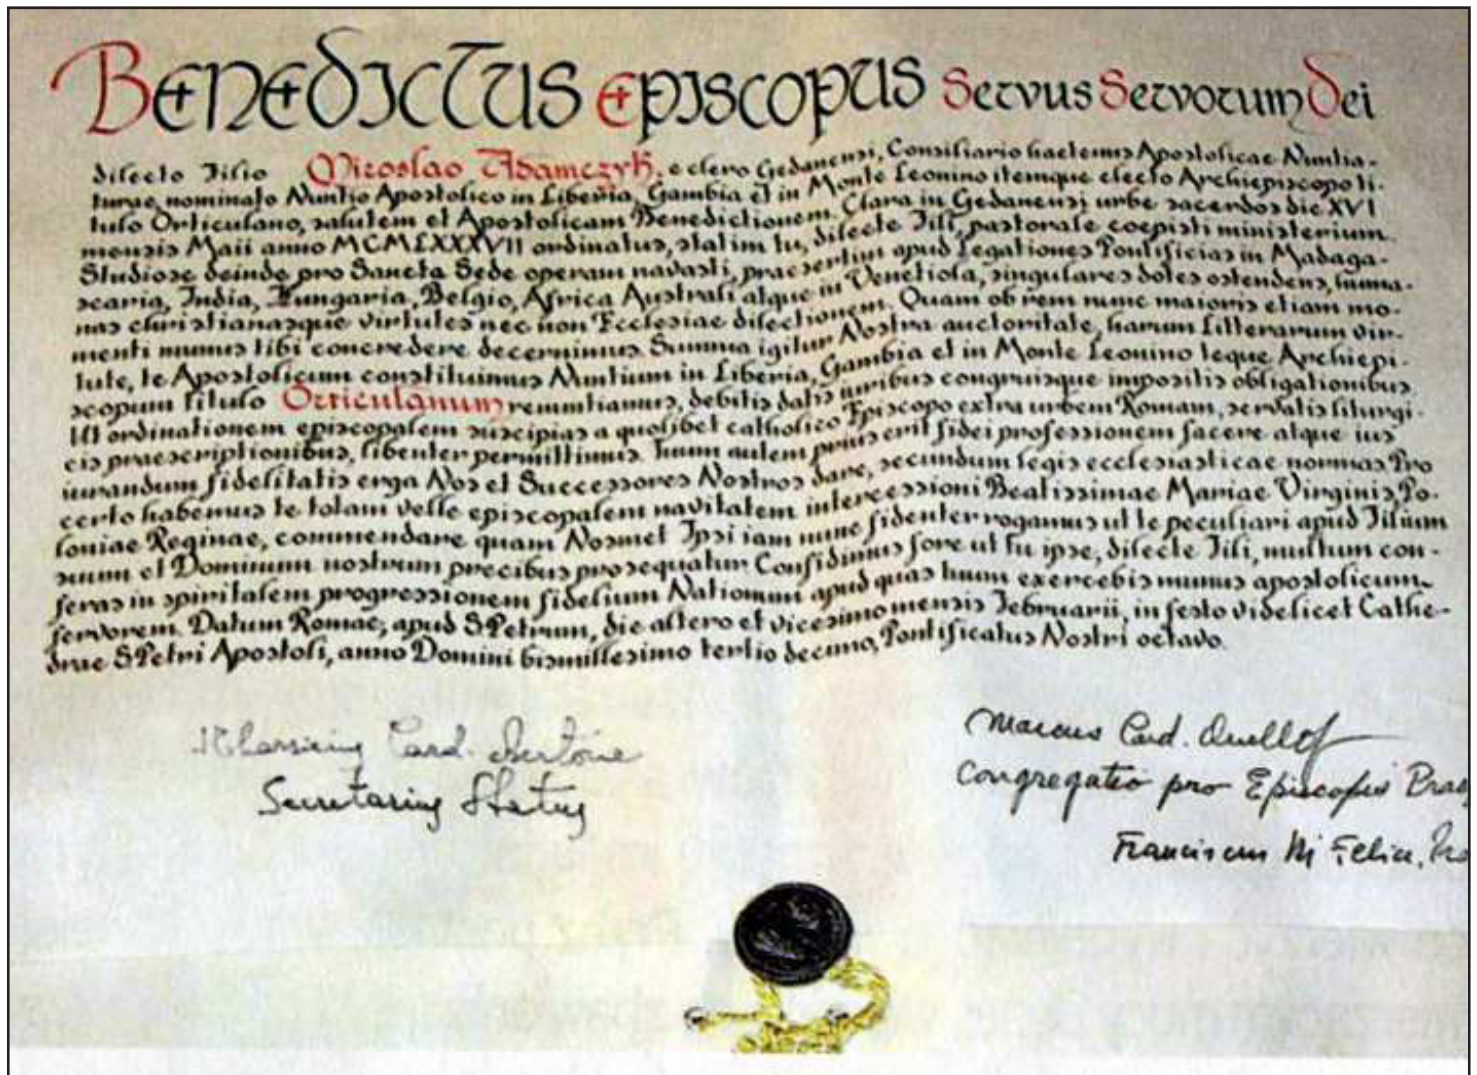 BENEDICTUS EPISCOPUS Servus Servorum Dei
dilecto Filio Miroslao Adamczyk, e clero Gedanensi, Consiliario hactenus Apostolicae Nuntia-
turae, nominato Nuntio Apostolico in Liberia, Gambia et in Monte Leonino itemque electo Archiepiscopo ti-
tulo Orticulano, salutem et Apostolicam Benedictionem. Clara in Gedanensi urbe sacerdos die XVI
mensis Maii anno MCMLXXXVII ordinatus, statim tu, dilecte Fili, pastorale coepisti ministerium.
Studiose deinde pro Sancta Sede operam navasti, praesertim apud Legationes Pontificias in Madaga-
scaria, India, Hungaria, Belgio, Africa Australi atque in Venetiola, singulares dotes ostendens, huma-
nas christianasque virtutes nec non Ecclesiae dilectionem. Quam ob rem nunc maioris etiam mo-
menti munus tibi concredere decernimus. Summa igitur Nostra auctoritate, harum Litterarum vir-
tute, te Apostolicum constituimus Nuntium in Liberia, Gambia et in Monte Leonino teque Archiepi-
scopum titulo Orticulanum renuntiamus, debitis datis iuribus congruisque impositis obligationibus.
Ut ordinationem episcopalem suscipias a quolibet catholico Episcopo extra urbem Romam, servatis liturgi-
cis praescriptionibus, libenter permittimus. Tuum autem prius erit fidei professionem facere atque ius
iurandum fidelitatis erga Nos et Successores Nostros dare, secundum legis ecclesiasticae normas. Pro
certo habemus te totam velle episcopalem navitatem intercessioni Beatissimae Mariae Virginis, Po-
loniae Reginae, commendare quam Nosmet Ipsi iam nunc fidenter rogamus ut te peculiari apud Filium
suum et Dominum nostrum precibus prosequatur. Confidimus fore ut tu ipse, dilecte Fili, multum con-
feras in spiritalem progressionem fidelium Nationum apud quas tuum exercebis munus apostolicum-
fervorem. Datum Romae, apud S. Petrum, die altero et vicesimo mensis Februarii, in festo videlicet Cathe-
drae S. Petri Apostoli, anno Domini bismillesimo tertio decimo, Pontificatus Nostri octavo.
Card. Bertone
Secretarius Status
Marcus Card. Ouellet
Congregatio pro Episcopis
Franciscus Di Felice,